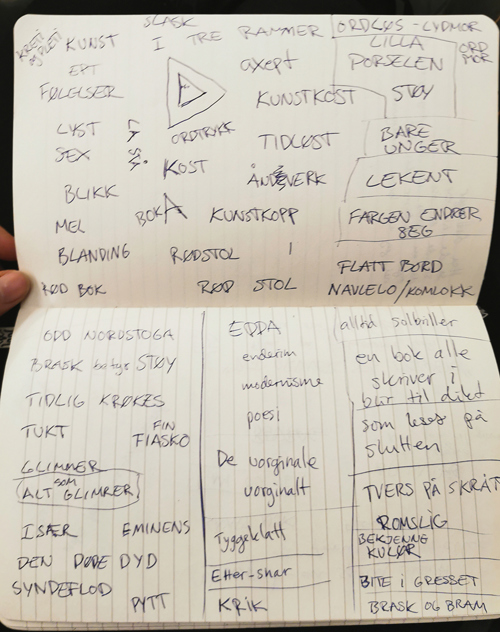 SLASK
I TRE RAMMER
KUNST
EPT
FØLELSER
LYST
SEX
BLIKK
MEL
BLANDING
RØD BOK
ORDTRYKK
KOST
BOKA
RØDSTOL
RØD STOL
axept
KUNSTKOST
TIDLØST
ÅNDSVERK
KUNSTKOPP
ORDLØS - LYDMOR
LILLA
PORSELEN
STØY
ORD
MOR
BARE
UNGER
LEKENT
FARGEN ENDRER
SEG
FLATT BORD
NAVLELO/KOMLOKK
ODD NORDSTOGA
BRASK betyr STØY
TIDLIG KRØKES
TUKT
FIN
FIASKO
GLIMMER
SOM
ALT GLIMRER
ISÆR
EMINENS
DEN DØDE DYD
SYNDEFLOD
PYTT
EDDA
enderim
modernisme
poesi
De vorginale
vorginalt
Tyggeklatt
Etter-snar
KRIK
alltid solbriller
en bok alle
skriver i
blir til dikt
som leses på
slutten
TVERS PÅ SKRÅT
ROMSLIG
BEKJENNE
KULØR
BITE I GRESSET
BRASK OG BRAM